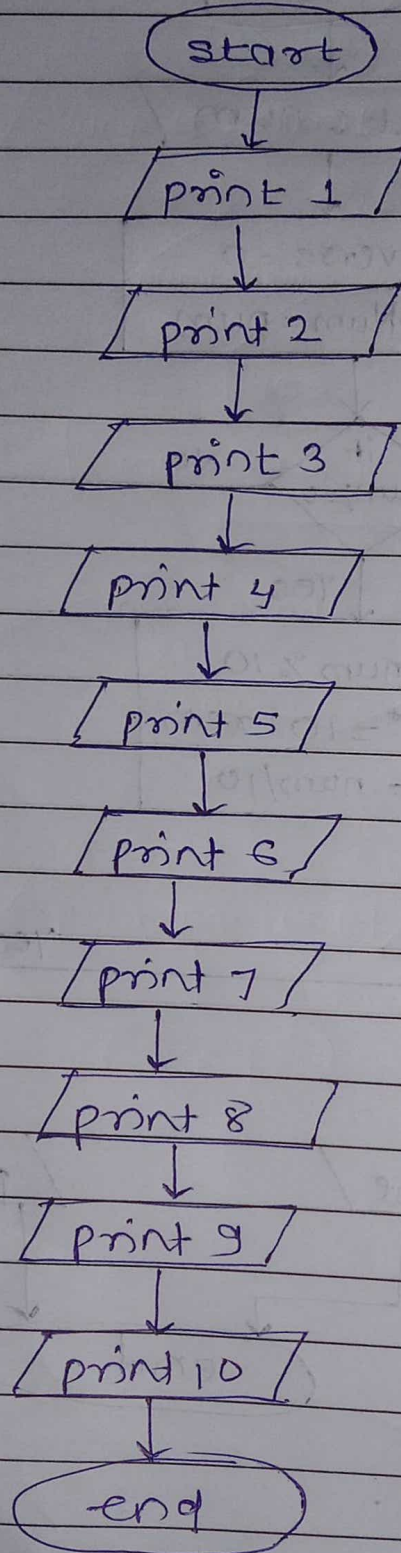 start
print 1
print 2
print 3
print 4
print 5
print 6
print 7
print 8
print 9
print 10
end